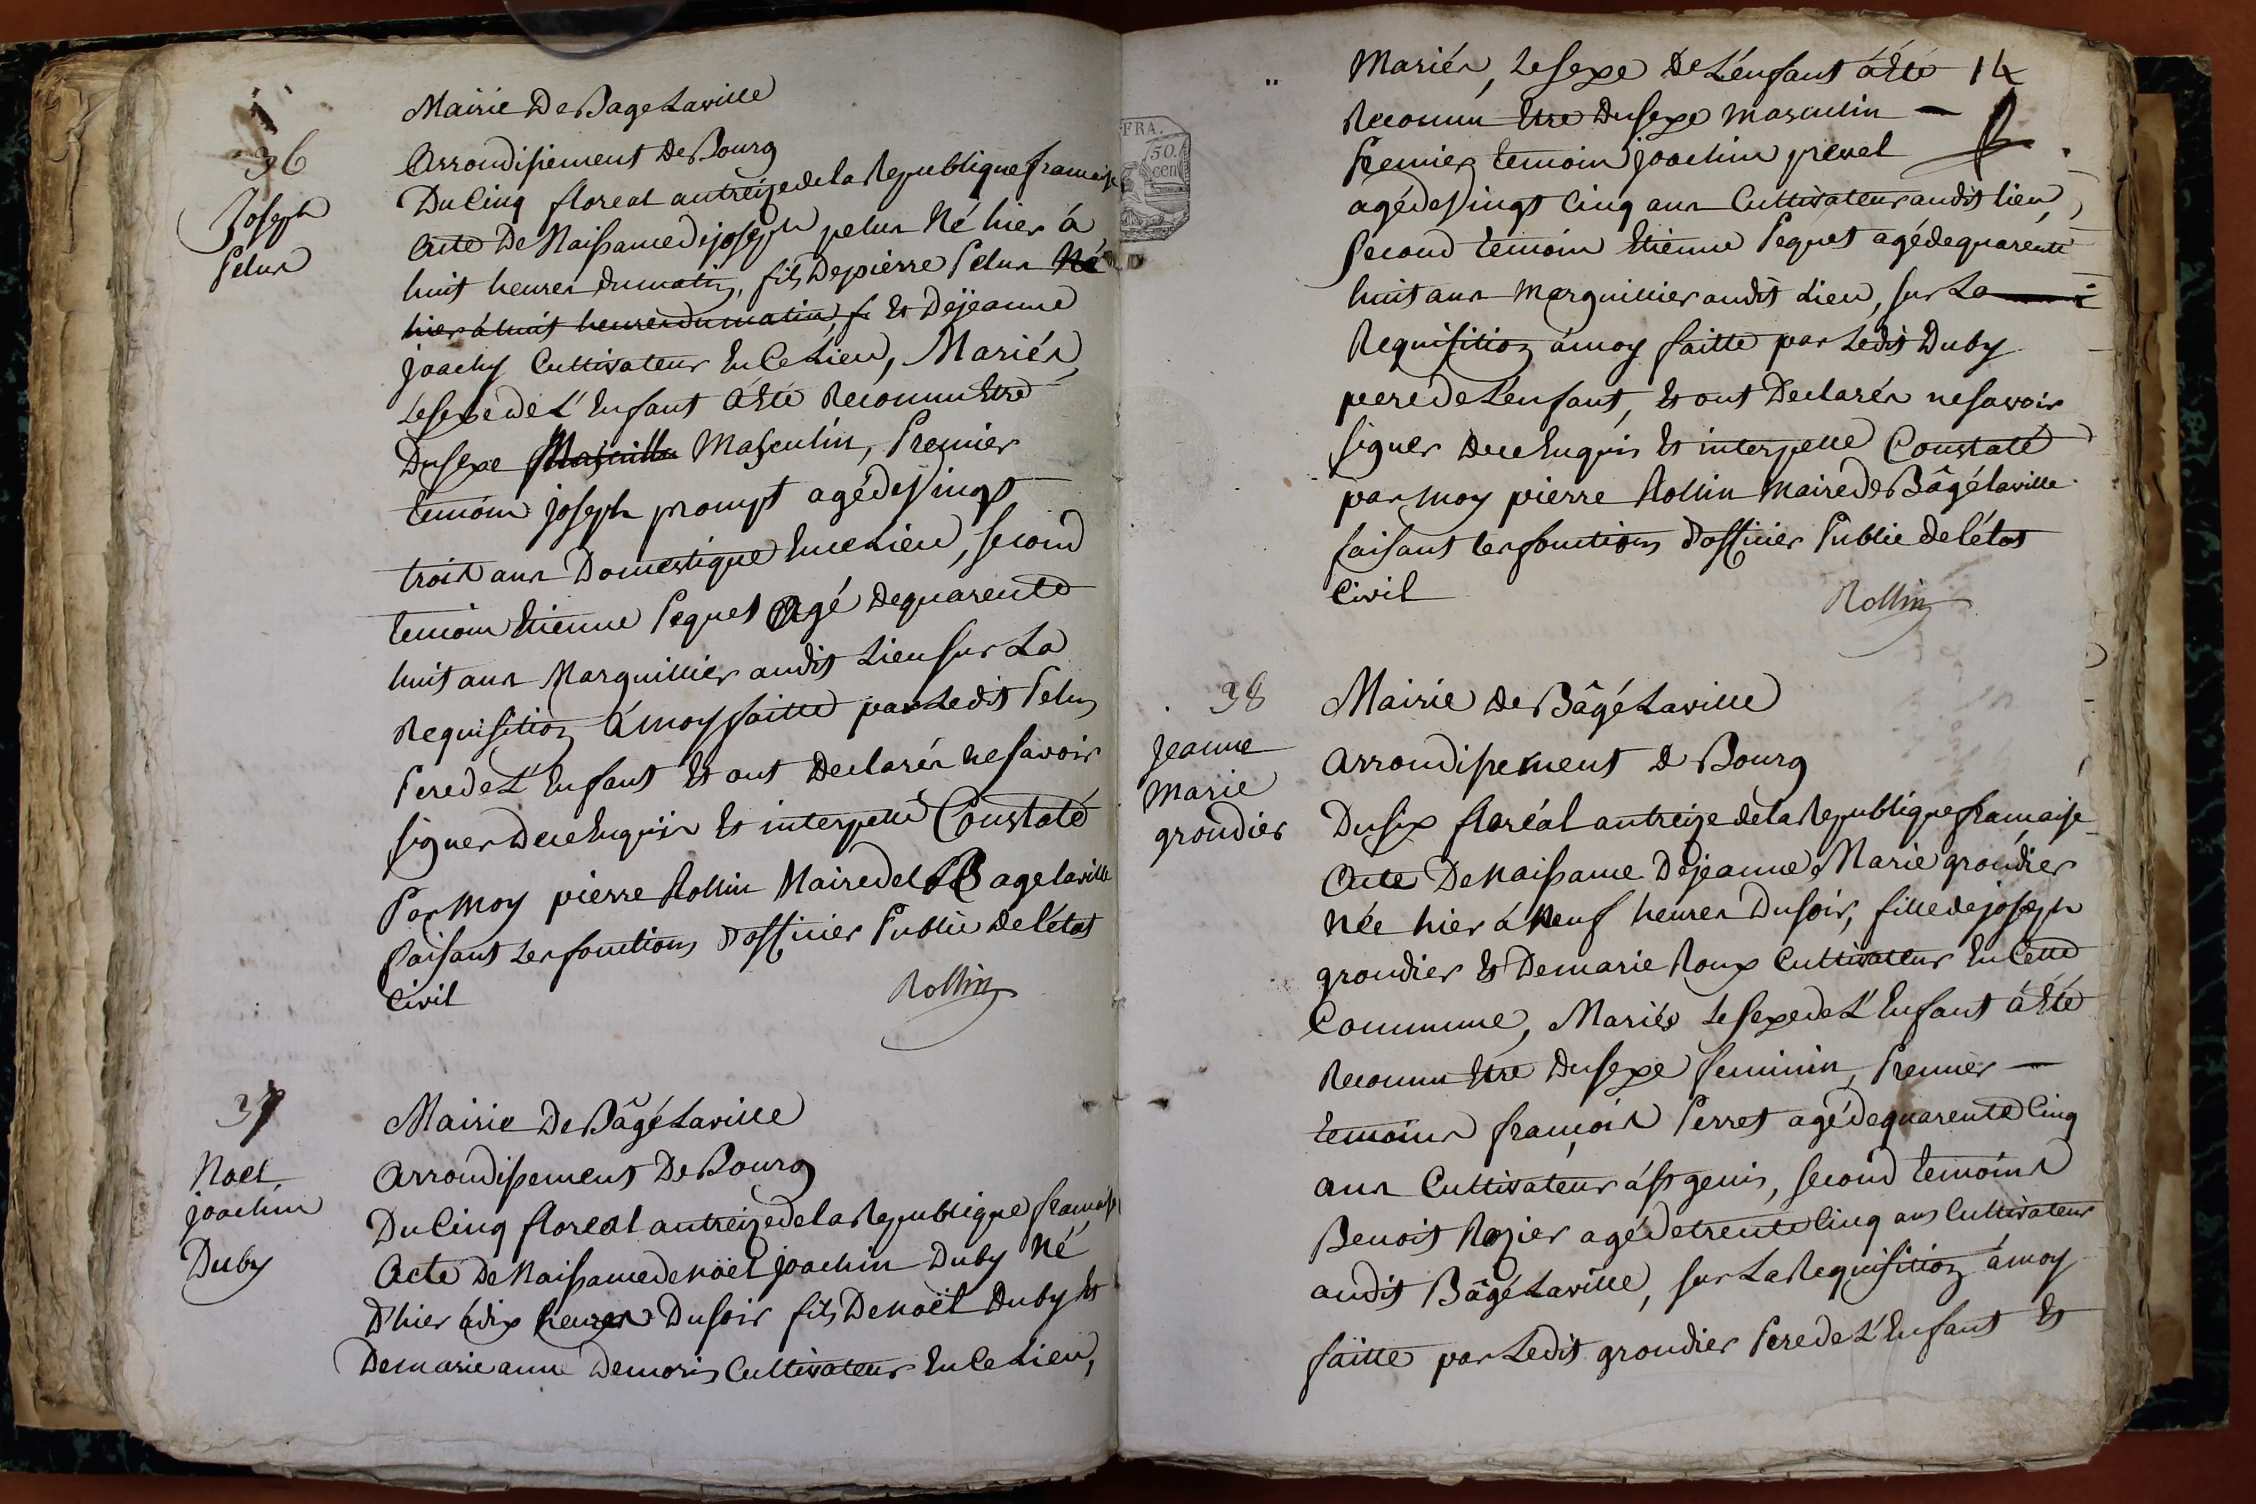 36
Joseph
Pelus
Mairie De Bage Laville
Arrondissement De Bourg
Du Cinq floreal an treize de la Republique francaise
Acte De Naissance de joseph pelus Né hier à
huit heures du matin, fils De pierre Pelus Né
hier à huit heures du matin, f Et De jeanne
joachy Cultivateur En Ce Lieu, Mariés,
Le sexe de L'Enfant à Eté Reconnu Etre
Du sexe Masculin, Premier
temoin joseph prompt agé de Vingt
trois ans Domestique En ce Lieu, second
temoin Etienne Pequet Agé de quarente
huit ans Marguillier audit Lieu sur La
Requisition à moy faitte par Ledit Pelus
Pere de L'Enfant Et ont Declarés ne savoir
signer De ce Enquis Et interpellé Constaté
Par Moy pierre Rollin Maire de Bage laville
faisant Les fonctions D'officier Public de l'état
Civil
Rollin
37
Noel
joachim
Duby
Mairie De Bâgé Laville
Arrondissement De Bourg
Du Cinq floreal an treize de la Republique francaise
Acte De Naissance de noël joachim Duby Né
D'hier à dix heures Du soir fils De noël Duby Et
De marie anne Demoris Cultivateur En Ce Lieu,
FRA.
50.
cen
14
Mariés, Le sexe De L'enfant à Eté
Reconnu Etre Du sexe masculin
Premier temoin joachim prevel
agé de Vingt Cinq ans Cultivateur audit lieu,
second temoin Etienne Pequet agé de quarente
huit ans marguillier audit Lieu, sur La
Requisition à moy faitte par Ledit Duby
pere de L'enfant, Et ont Declarés ne savoir
signer De ce Enquis Et interpelle Constaté
par moy pierre Rollin maire de Bâgé laville
faisant les fonctions D'officier Public de l'état
Civil
Rollin
38
jeanne
marie
grondier
Mairie De Bâgé Laville
Arrondissement De Bourg
Du six floréal an treize de la Republique francaise
Acte De Naissance De jeanne Marie grondier
Née hier à Neuf heures Du soir, fille de joseph
grondier Et De marie Roux Cultivateur En Cette
Commune, Mariés Le sexe de L'Enfant à Eté
Reconnu Etre Du sexe feminin, Premier
temoins françois Perret agé de quarente Cinq
ans Cultivateur à St genis, second temoins
Benoit Rozier agé de trente Cinq ans Cultivateur
audit Bâgé Laville, sur La Requisition à moy
faitte par Ledit grondier Pere de L'Enfant Et